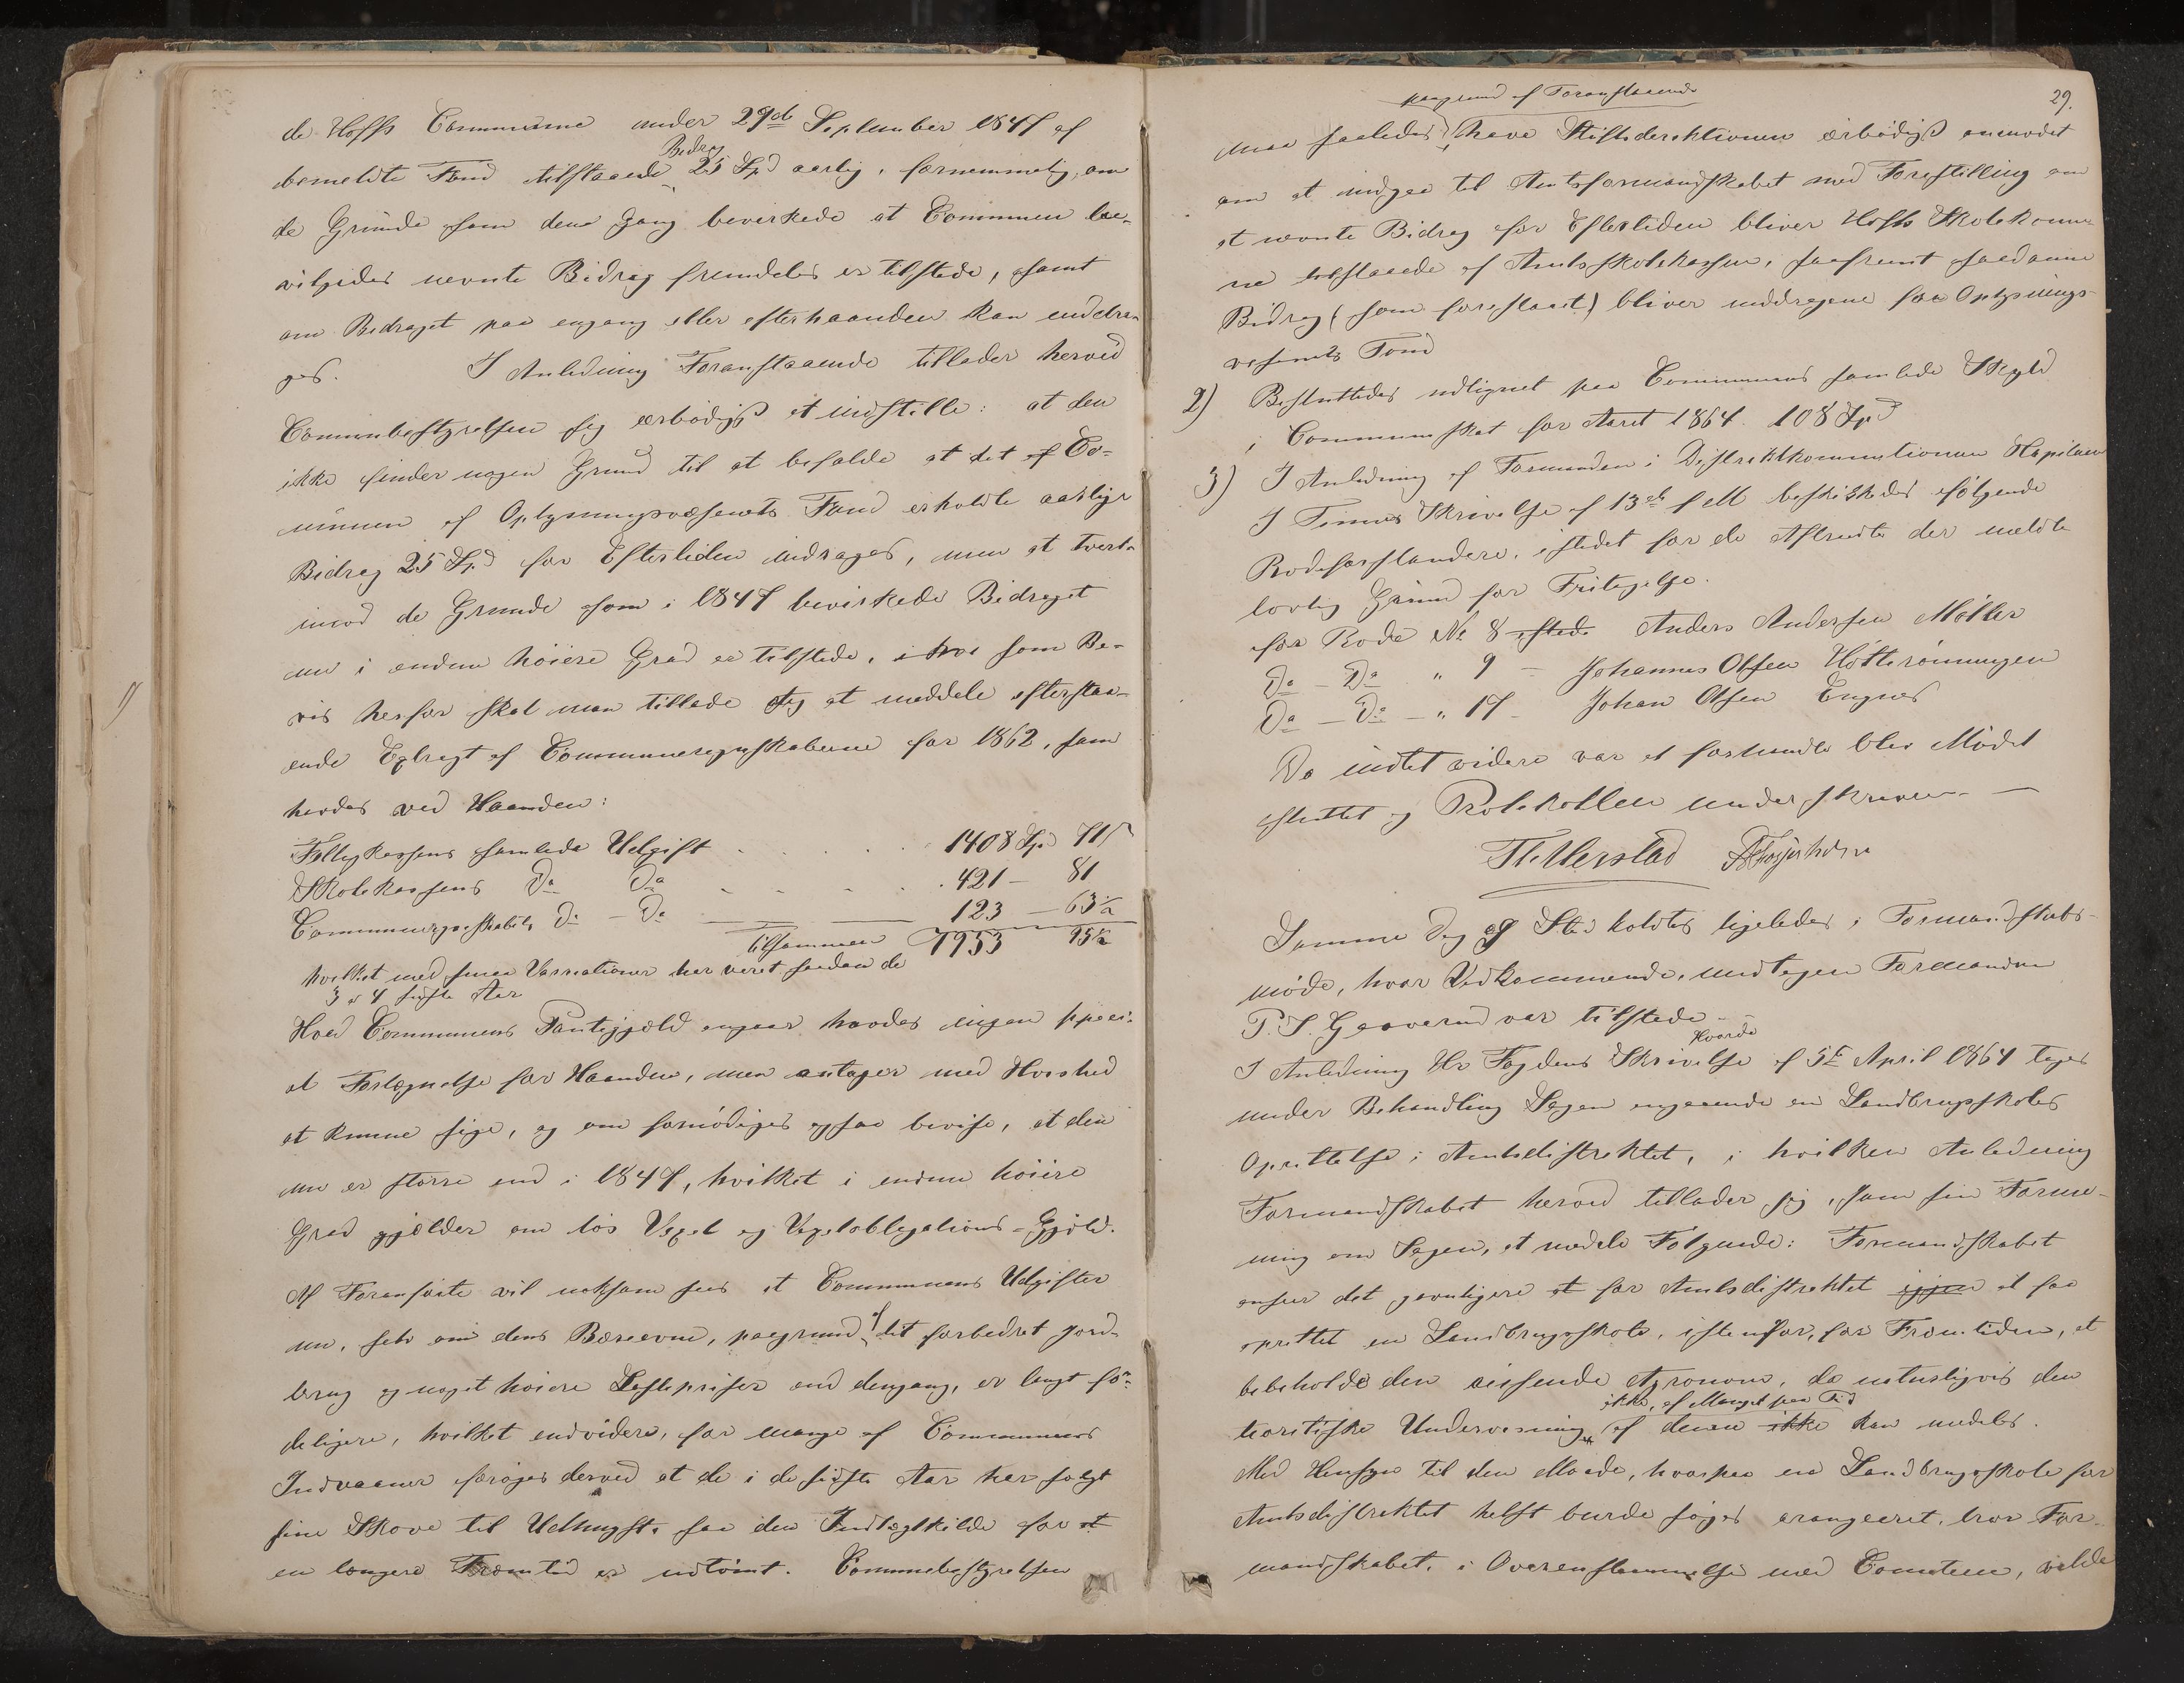 de Hoffs Commune under 29de September 1847 af
Bedrag
bemeldte Fond tilstaaede 25 Spd aarlig, fornemmelig, om
de Grunde som den Gang bevirkede at Communen be-
vilgedes nevnte Bidrag fremdeles er tilstede, samt
om Bedraget paa engang eller efterhaanden kan inddra-
ges. I Anledning Foranstaaende tillader herved
Communbestyrelsen sig ærbødigst at indstille: at den
ikke finder nogen Grund til at befalde at det af Co-
munen af Oplysningsvæsenets Fond erholdte aarlige
Bidrag 25 Spd for Eftertiden indrages, men at tvert-
imod de Grunde som i 1847 bevirkede Bidraget
nu i endnu høiere Grad er tilstede, i hvo som Be-
vis herfor skal man tillade sig at meddele efterstaa-
ende Extragt af Communeregnskaberne for 1862, som
havdes ved Haanden:
Fattigkassens samlede Udgift 1408 Spd 71 s
Skolekassens Do Do 421 — 81
Communeregnskabets Do — Do 123 — 63½
tilsammen 1953 95½
hvilket med smaa Variationer har veret saadan de
3 a 4 sidste Aar
Hvad Communens Pantegjæld angaar havdes ingen speci-
el Fortegnelse for Haanden, men antager med Vished
at kunne sige, og om fornødiges ogsaa bevise, at den
nu er større end i 1847, hvilket i endnu høiere
Grad gjælder om løs Vexel og Vexelobligations-Gjæld.
Af Foranførte vil noksom sees at Communens Udgifter
nu, selv om dens Bæreevne, paagrund af lit forbedret Jord-
brug og noget høiere Losteprifer end dengang, er langt før-
deligere, hvilket endvidere, for mange af Communens
Indvaaner forøges derved at de i de sidste Aar har solgt
sine Skove til Udhugst, saa den Indtægtkilde for et
en længere Fremtid er udtømt. Communebestyrelsen
29.
paagrund af Foranstaaende
maa saaledes have Stiftsdirektionen ærbødigst anmodet
om at indgaa til Amtsformandskabet med Forestilling om
at nevnte Bidrag for Eftertiden bliver Hoffs Skolekom-
ne tilstaaede af Amtsskolekassen, saafremt saadanne
Bidrag (som foreslaaet) bliver inddragene fra Oplysnings-
vesenets Fond
2) Besluttedes udlignet paa Communens samlede Skyld
i Communeskat for Aaret 1864. 108 Spd
3) I Anledning af Formanden i Distriktkommitionen Kapitain
J Finnes Skrivelse af 13de f M beskikkedes følgende
Rodeforstandere, istedet for de Aftraadte der meldte
lovlig Grund for Fritagelse.
for Rode No 8 istede Anders Andersen Møller
Do — Do " 9 — Johannes Olsen Hötterønningen
Do — Do — " 17 — Johan Olsen Engnes
Da intet videre var at forhandle blev Mødet
sluttet og Protokollen underskreven. —
Samme Dag og Sted holdtes ligeledes i Formandskabs-
møde, hvor Vedkommende, undtagen Formanden
P. S. Gaarerud var tilstede —
Hvorde
I Anledning Hr Fogdens Skrivelse af 5te April 1864 toges
under Behandling Sagen angaaende en Landbrugsskoles
Oprettelse i Amtsdistriktet, i hvilken Anledning
Formandskabet herved tillader sig, som sin Forme-
ning om Sagen, at meddele Følgende: Formandskabet
anseer det gavnligere at for Amtsdistriktet igjen at faa
oprettet en Landbrugsskole, istenfor, for Fremtiden, at
beholde den reisende Agronom, da naturligvis den
ikke, af Mangel paa Tid
teoritiske Undervisning af denne ikke kan medeles.
Med Hensyn til den Maade, hvorpaa en Landbrugsskole for
Amtsdistriktet helst burde søges arangeeret, tror For-
mandskabet, i Overenstemmelse med Comiteen, vilde